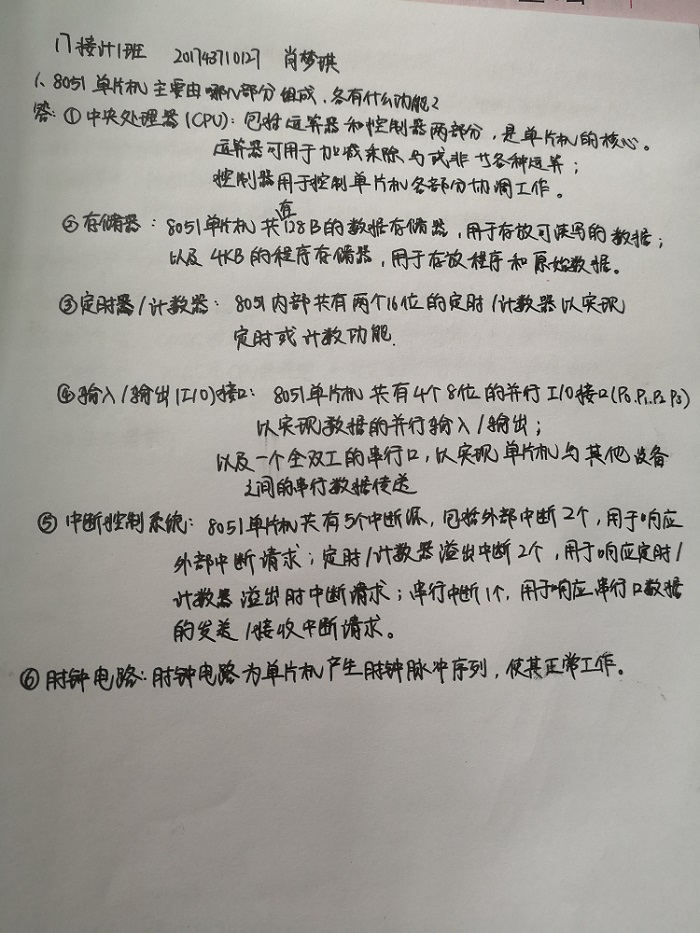 17接计1班 201743710127 肖梦琪
1、8051单片机主要由哪几部分组成,各有什么功能?
答:①中央处理器(CPU):包括运算器和控制器两部分,是单片机的核心。
运算器可用于加减乘除与或非等各种运算;
控制器用于控制单片机各部分协调工作。
②存储器:8051单片机共有128B的数据存储器,用于存放可读写的数据;
以及4KB的程序存储器,用于存放程序和原始数据。
③定时器/计数器:8051内部共有两个16位的定时/计数器以实现
定时或计数功能.
④输入/输出(I/O)接口:8051单片机共有4个8位的并行I/O接口(P0.P1.P2.P3)
以实现数据的并行输入/输出;
以及一个全双工的串行口,以实现单片机与其他设备
之间的串行数据传送
⑤中断控制系统:8051单片机共有5个中断源,包括外部中断2个,用于响应
外部中断请求;定时/计数器溢出中断2个,用于响应定时/
计数器溢出时中断请求;串行中断1个,用于响应串行口数据
的发送/接收中断请求。
⑥时钟电路:时钟电路为单片机产生时钟脉冲序列,使其正常工作。